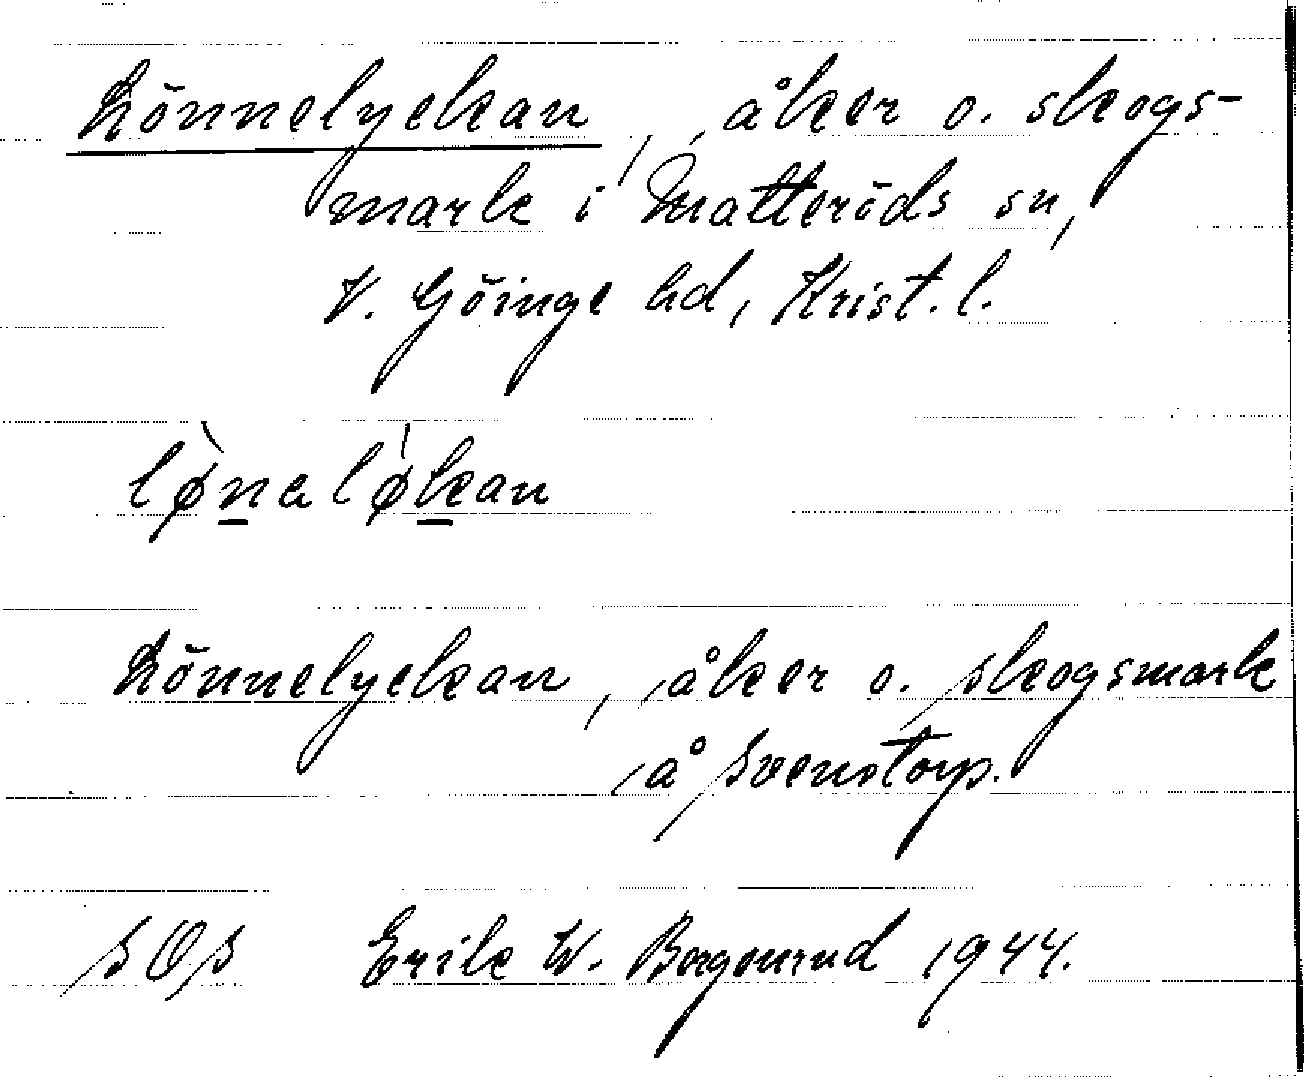 Lönnelyckan, åker o. skogs-
mark i Matteröds sn,
V. Göinge hd, Krist. l.
lø̀nalø̍kan
Lönnelyckan, åker o. skogsmark
å Svenstorp.
SOS Erik W. Borgenrud 1944.